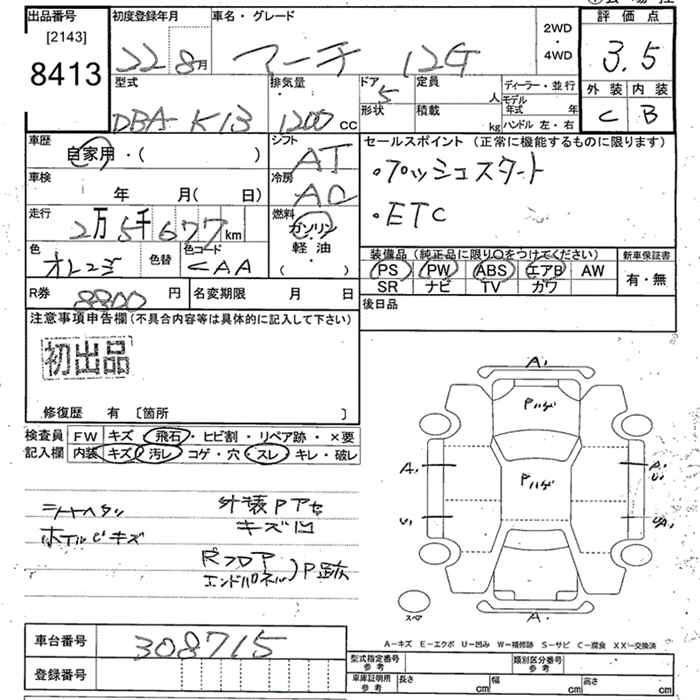 出品番号
[2143]
8413
初度登録年月
22 8月
車名・グレード
マーチ 12G
2WD
・
4WD
評価点
3.5
外装 内装
C B
型式
DBA-K13
排気量
1200 cc
ドア
5
形状
定員
人
積載
kg
ディーラー・並行
モデル年式 年
ハンドル 左・右
車歴
自家用・( )
シフト
AT
車検
年 月( 日)
冷房
AC
走行
2万5千677km
燃料
ガソリン
軽油
( )
色
オレンジ
色替
色コード
CAA
セールスポイント (正常に機能するものに限ります)
・プッシュスタート
・ETC
装備品 (純正品に限り○をつけてください)
PS PW ABS エアB AW
SR ナビ TV カワ
新車保証書
有・無
R券
8800円
名変期限 月 日
後日品
注意事項申告欄(不具合内容等は具体的に記入して下さい)
初出品
修復歴 有 〔箇所 〕
検査員
記入欄
FW キズ・飛石・ヒビ割・リペア跡・×要
内装 キズ・汚レ・コゲ・穴・スレ・キレ・破レ
シートヘタリ
ホイルCキズ
外装Pアセ
キズ凹
Rフロア
エンドパネル)P跡
A1
Pハゲ
Pハゲ
A1
A1
U1
U1
UA1
A1
スペア
A-キズ E-エクボ U-凹み W-補修跡 S-サビ C-腐食 XX-交換済
車台番号
308715
登録番号
型式指定番号
参考
類別区分番号
参考
車庫証明所
参考
長さ cm
幅 cm
高さ cm